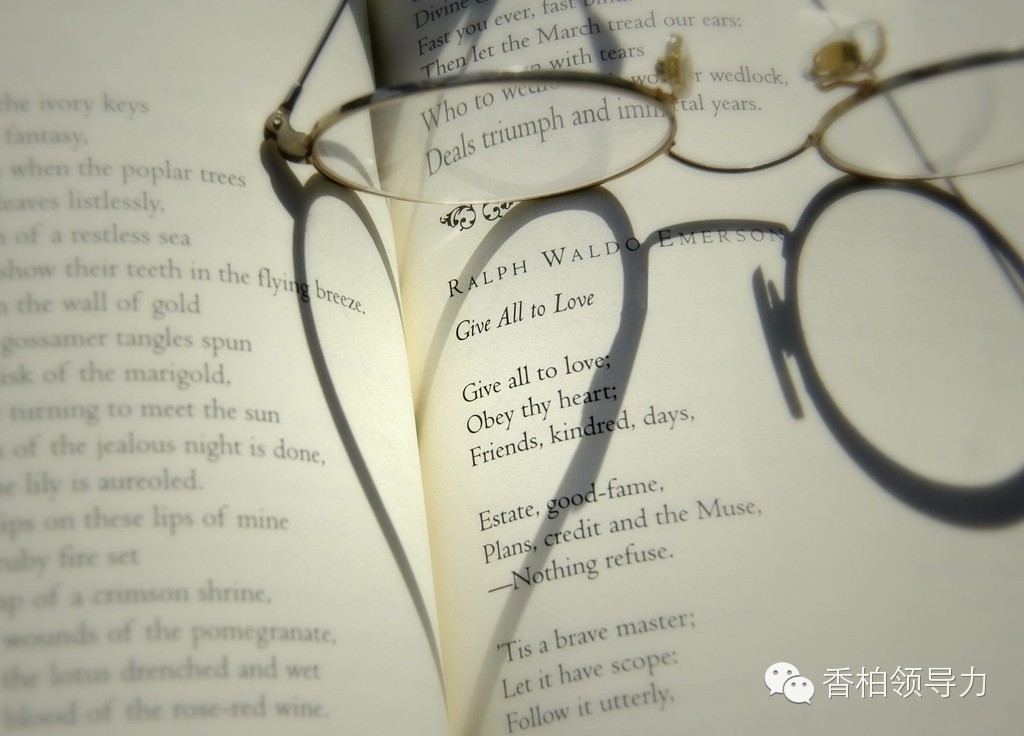 the ivory keys
fantasy,
when the poplar trees
leaves listlessly,
of a restless sea
show their teeth in the flying breeze.
the wall of gold
gossamer tangles spun
of the marigold,
turning to meet the sun
of the jealous night is done,
lily is aureoled.
on these lips of mine
ruby fire set
of a crimson shrine,
wounds of the pomegranate,
the lotus drenched and wet
blood of the rose-red wine.
Divine
Fast you ever, fast
Then let the March tread our ears:
with tears
Who to wedlock,
Deals triumph and immortal years.
RALPH WALDO EMERSON
Give All to Love
Give all to love;
Obey thy heart;
Friends, kindred, days,
Estate, good-fame,
Plans, credit and the Muse,
—Nothing refuse.
'Tis a brave master;
Let it have scope:
Follow it utterly.
香柏领导力